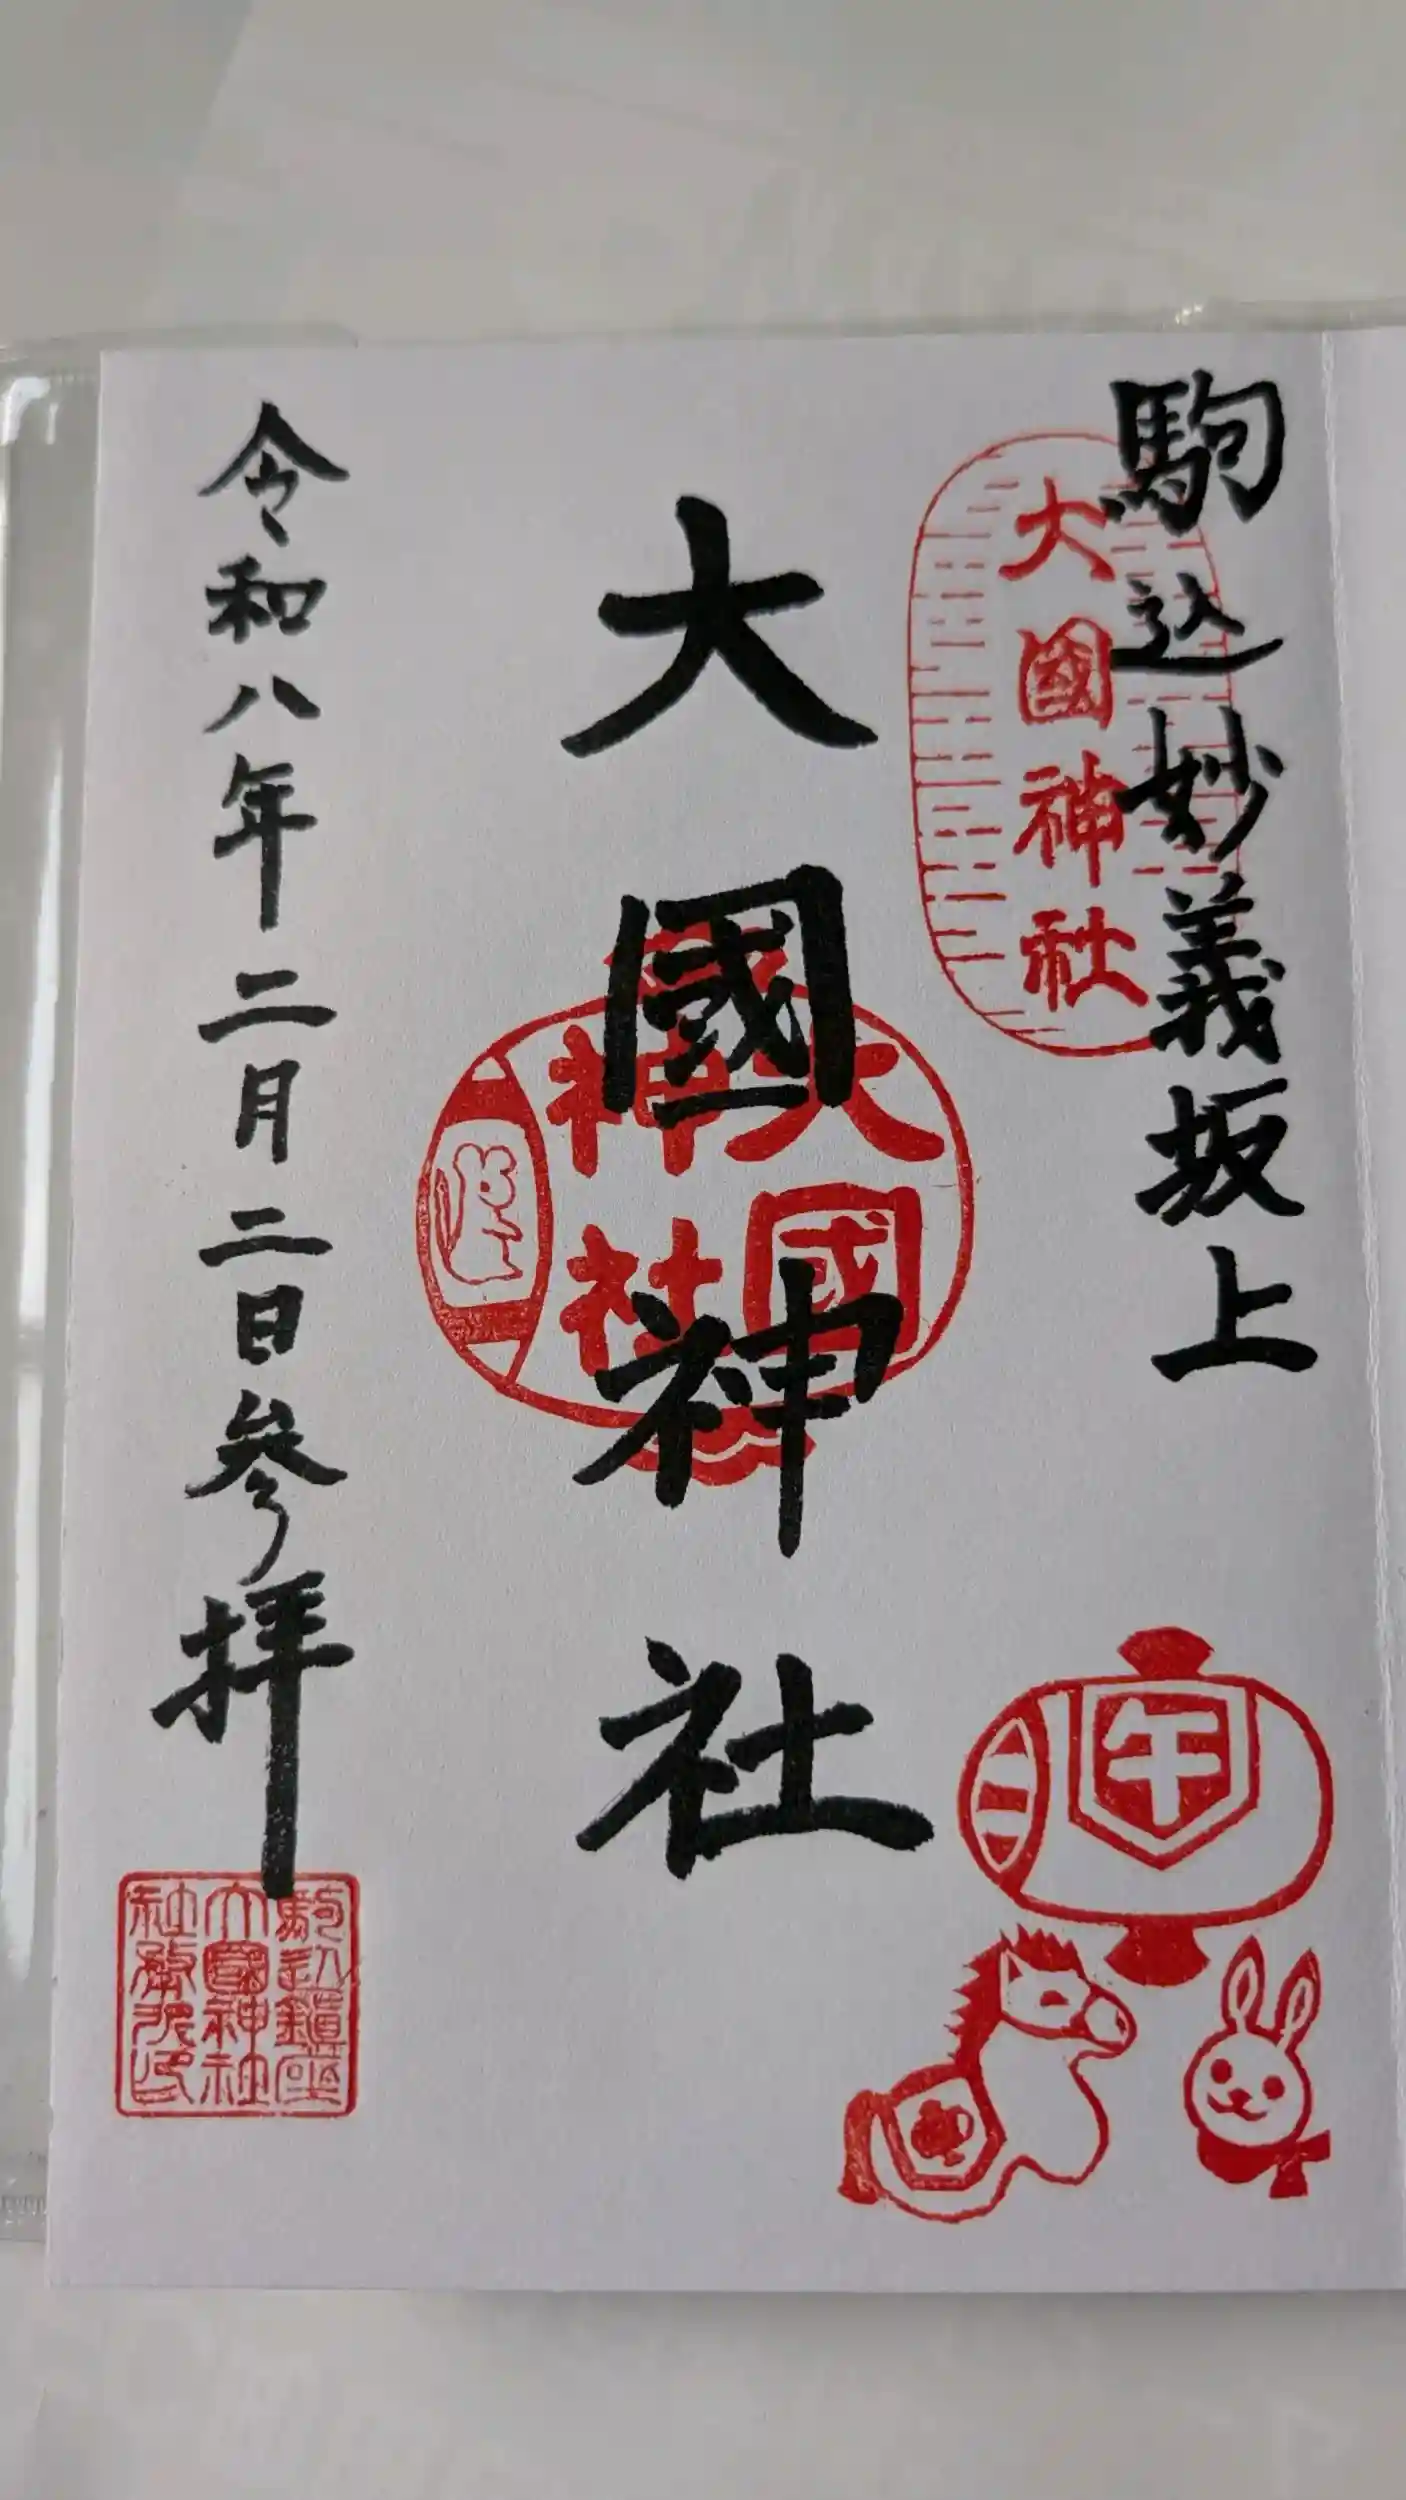 駒込妙義坂上
大國神社
大國神社
大國
神社
令和八年二月二日参拝
午
駒込鎮座
大國神社